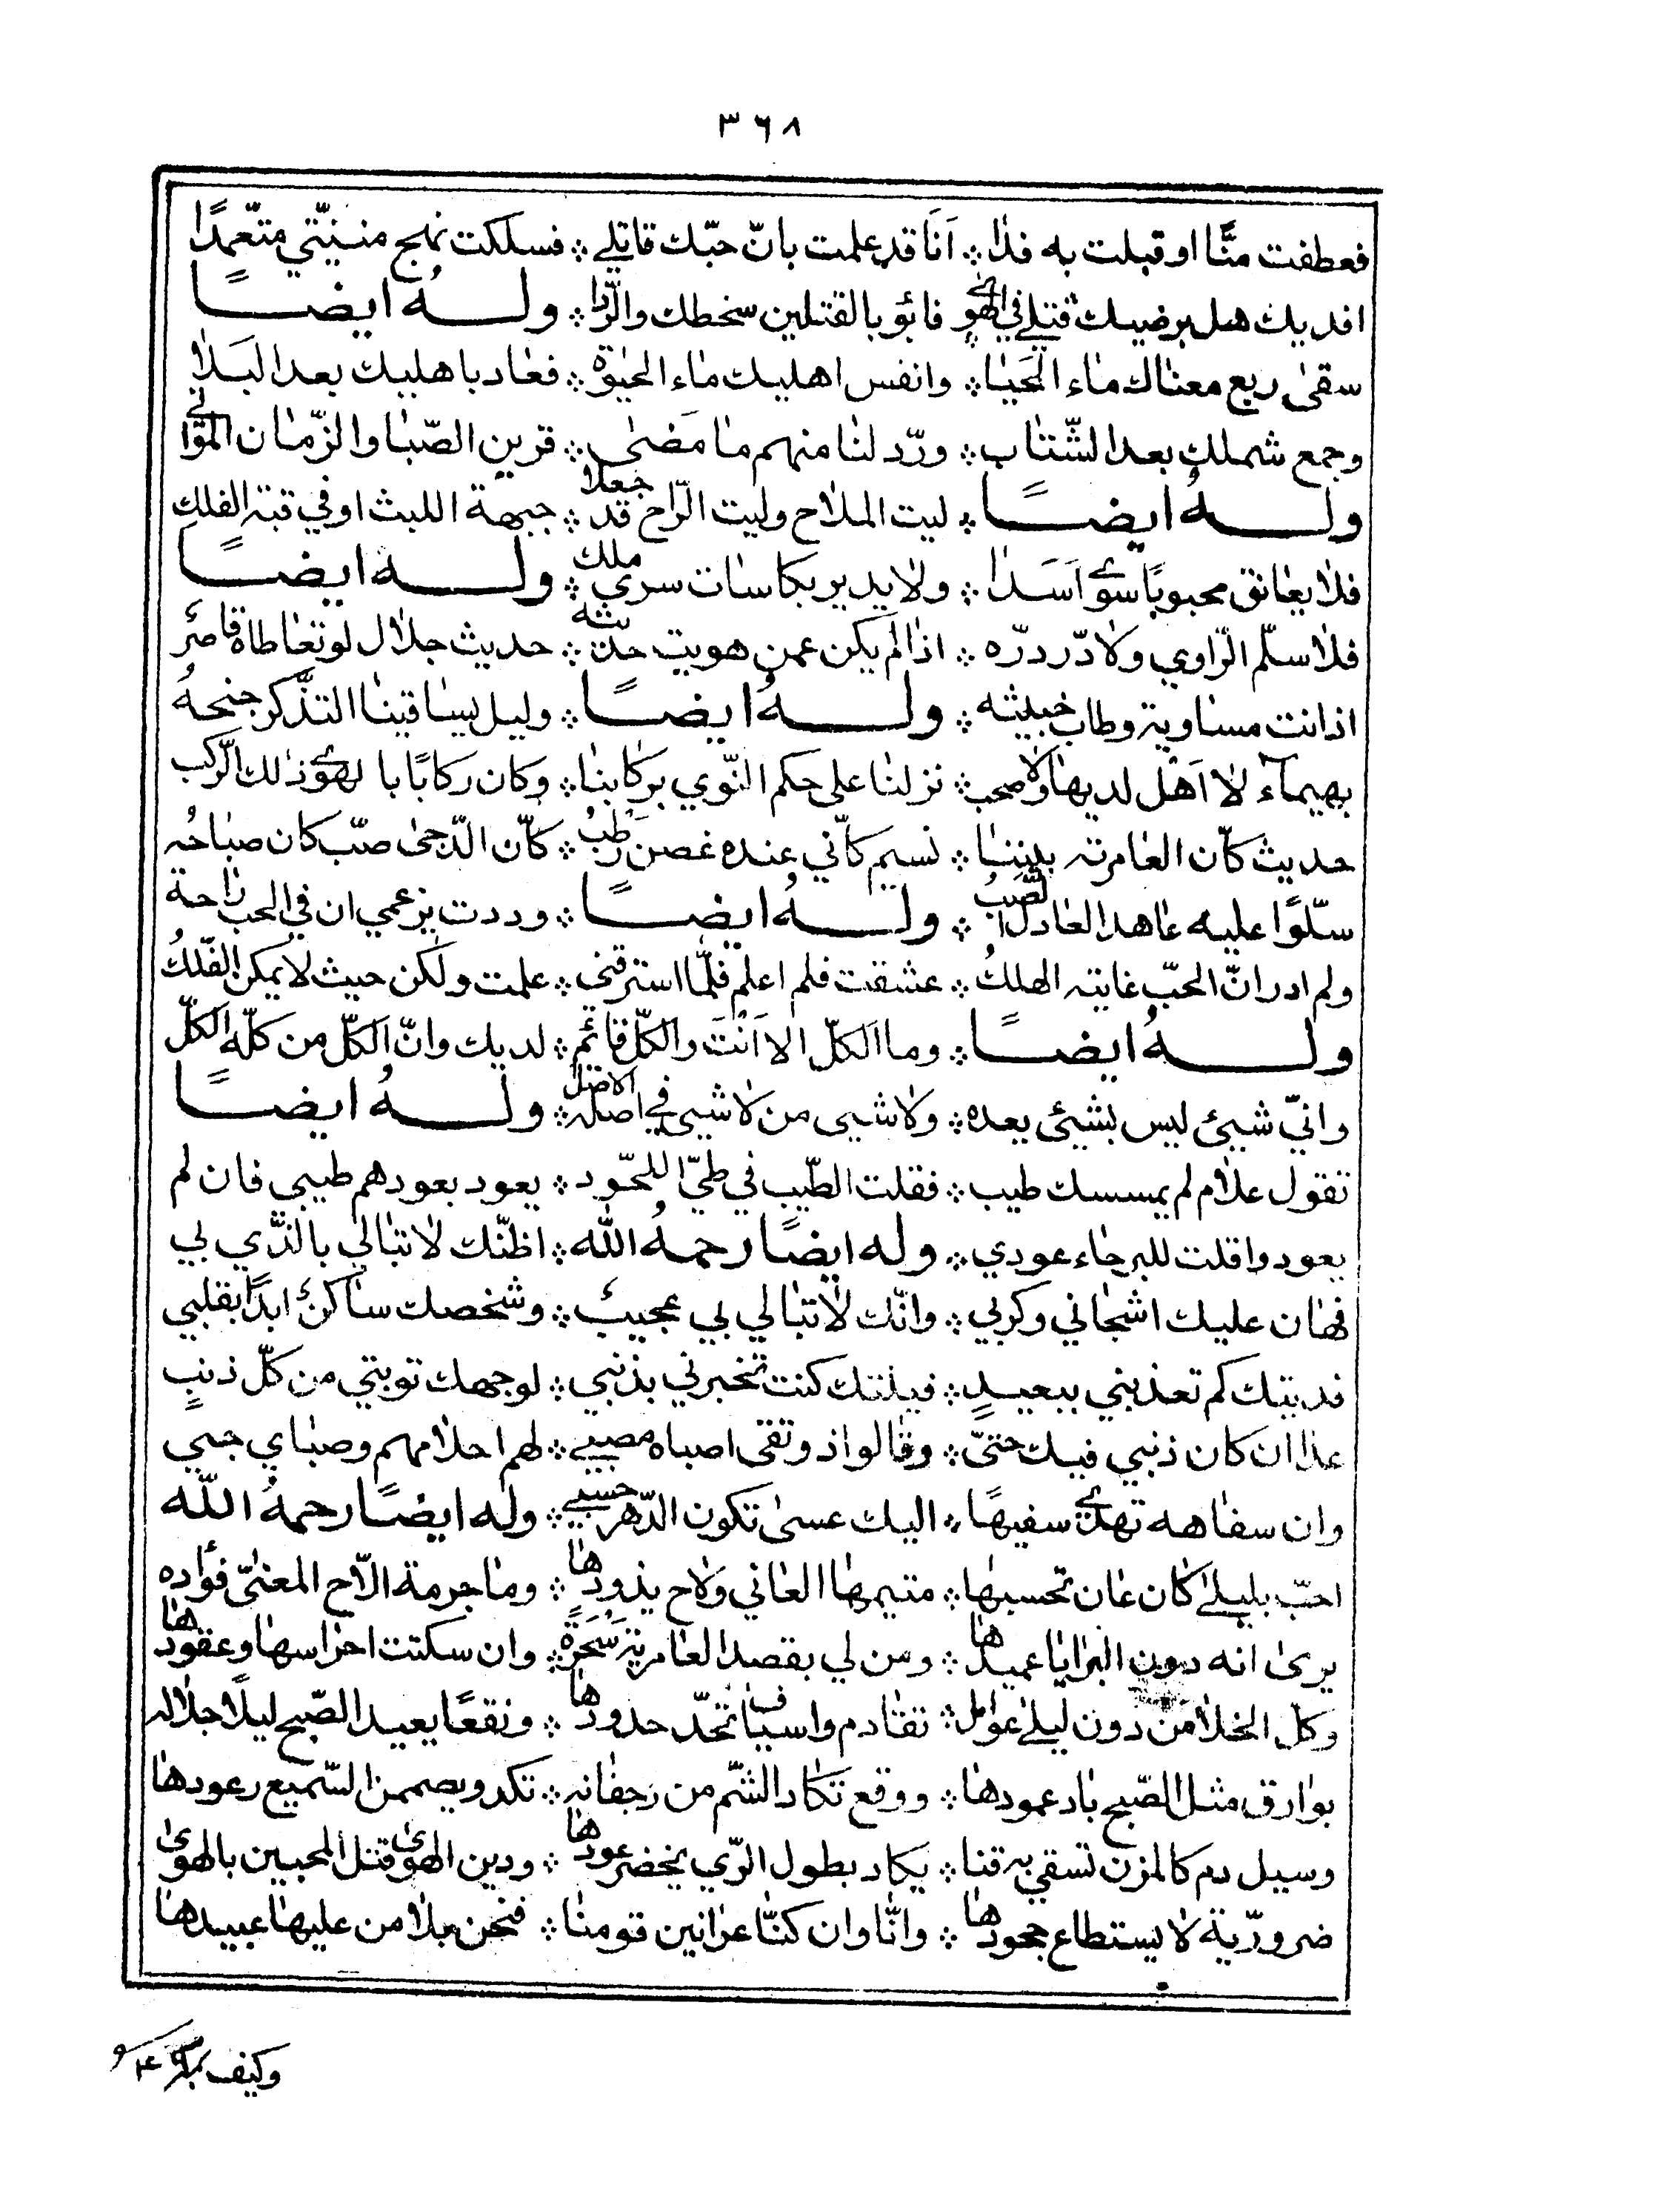 ٣٦٨
فعطفت منًّا او قبلت به فدا ⁘ اَنَا قد علمت بانّ حبّك قاتلي ⁘ فسلكت نهج منيّتي متعّمدًا
افديك هل يرضيك قتلي في الهوى فائو بالقتلين سخطك والرّدا ⁘ ولـــه ايضـــاً
سقى ربع معناك ماء الحَيَا ⁘ وانفس اهليك ماء الحيٰوة ⁘ فعاد باهليك بعد البَلا
وجمع شملك بعد الشّتات ⁘ وردّ لنا منهم ما مَضى ⁘ قرين الصّبا والزّمان المؤاتي
ولـــهُ ايضـــاً ⁘ ليت الملاح وليت الرّاح قد جعلا ⁘ جبهة الليث او في قبة الفلك
فلا يعانق محبوبًا سوى اَسَدا ⁘ ولا يدير بكاسات سرى ملك ⁘ ولـــه ايضـــاً
فلا سلّم الرّاوي ولا درّ درّه ⁘ اذا لم يكن عمن هويت حديثه ⁘ حديث جلال لو تعاطاه قاصرٌ
اذانت مساوية وطاب خبيثه ⁘ ولـــهُ ايضـــاً ⁘ وليل يساقينا التذّكر جنحهُ
بهيماء لا اَهْل لديها ولا صحب ⁘ نزلنا على حكم النّوي بركابنا ⁘ وكان ركابًا با لهوى ذلك الرّكب
حديث كأن العامرته بيننا ⁘ نسيم كأني عنده غصن رطبُ ⁘ كأن الدّجى صبّ كان صباحه
سلّوًا عليه عاهد العادل الصّبُ ⁘ ولـــهُ ايضـــاً ⁘ وددت بزعمي ان في الحب راحة
ولم ادر انّ الحبّ غايته الهلكُ ⁘ عشقت فلم اعلم فلمّا استرقنى ⁘ علمت ولكن حيث لا يمكن الفّلكُ
ولـــهُ ايضـــاً ⁘ وما الكلّ الا اَنْتَ والكلّ قائم ⁘ لديك وانّ الكلّ من كلّه الكلّ
وانيّ شيئ ليس بشيئ بعده ⁘ ولا شيى من لا شيى في اصله الاصل ⁘ ولـــهُ ايضـــاً
تقول علام لم يمسسك طيب ⁘ فقلت الطّيب في طيّ اللحّود ⁘ يعود بعودهم طيبي فان لم
يعود وا قلت للبرحاء عودي ⁘ وله ايضًا رحمهُ اللّه ⁘ اظنّك لا تبالي بالذّي بي
فهان عليك اشجاني وكربي ⁘ وانّك لا تبالي بي عجيبٌ ⁘ وشخصك ساكنٌ ابدًا بقلبي
فديتك كم تعذبني ببعيدٍ ⁘ فيلتك كنت تخبرني بذنبي ⁘ لوجهك توبتي من كلّ ذنبٍ
عدا ان كان ذنبي فيك حتىّ ⁘ وقالوا ذو تقى اصباه مصبي ⁘ لهم احلامهم وصباي جبي
وان سفاهه تهدى سفيهًا ⁘ اليك عسى تكون الدّهر حسبي ⁘ وله ايضًا رحمهُ اللّه
احبّ بليلى كان عان تحسبها ⁘ متيمها العاني ولاح يذودها ⁘ وما جرمة الّاح المعنىّ فؤاده
يرى انه دون البرايا عميدها ⁘ ومن لي بقصد العامرية سُحَرةً ⁘ وان سكتت احراسها وعقودها
وكل الخلا من دون ليلى عوامل ⁘ تقادم واسياف تحدّ حدودها ⁘ ونقعًا يعيد الصّبح ليلًا جلاله
بوارق مثل الصّبح باد عمودها ⁘ ووقع تكاد الشّم من رجفانه ⁘ تكد ويصممن السّميع رعودها
وسيل دم كالمزن تسقي به قنا ⁘ يكاد بطول الرّي يخضر عودها ⁘ ودين الهوى قتل المحبين بالهوى
ضرورّية لا يستطاع جحودها ⁘ وانّا وان كنّا عرانين قومنا ⁘ فنحن بلا من عليها عبيدها
وكيف